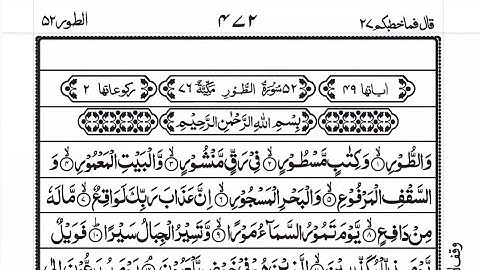 قال فما خطبكم ۲۷ ۴۷۲ الطور ۵۲
اٰیاتها ۴۹ ۵۲ سُوْرَةُ الطُّوْرِ مَكِّيَّةٌ ۷۶ رکوعاتها ۲
بِسْمِ اللهِ الرَّحْمٰنِ الرَّحِيْمِ
وَالطُّوْرِ ۱ وَكِتٰبٍ مَّسْطُوْرٍ ۲ فِيْ رَقٍّ مَّنْشُوْرٍ ۳ وَّالْبَيْتِ الْمَعْمُوْرِ ۴ وَ
السَّقْفِ الْمَرْفُوْعِ ۵ وَالْبَحْرِ الْمَسْجُوْرِ ۶ اِنَّ عَذَابَ رَبِّكَ لَوَاقِعٌ ۷ مَّا لَهٗ
مِنْ دَافِعٍ ۸ يَّوْمَ تَمُوْرُ السَّمَآءُ مَوْرًا ۹ وَّتَسِيْرُ الْجِبَالُ سَيْرًا ۱۰ فَوَيْلٌ